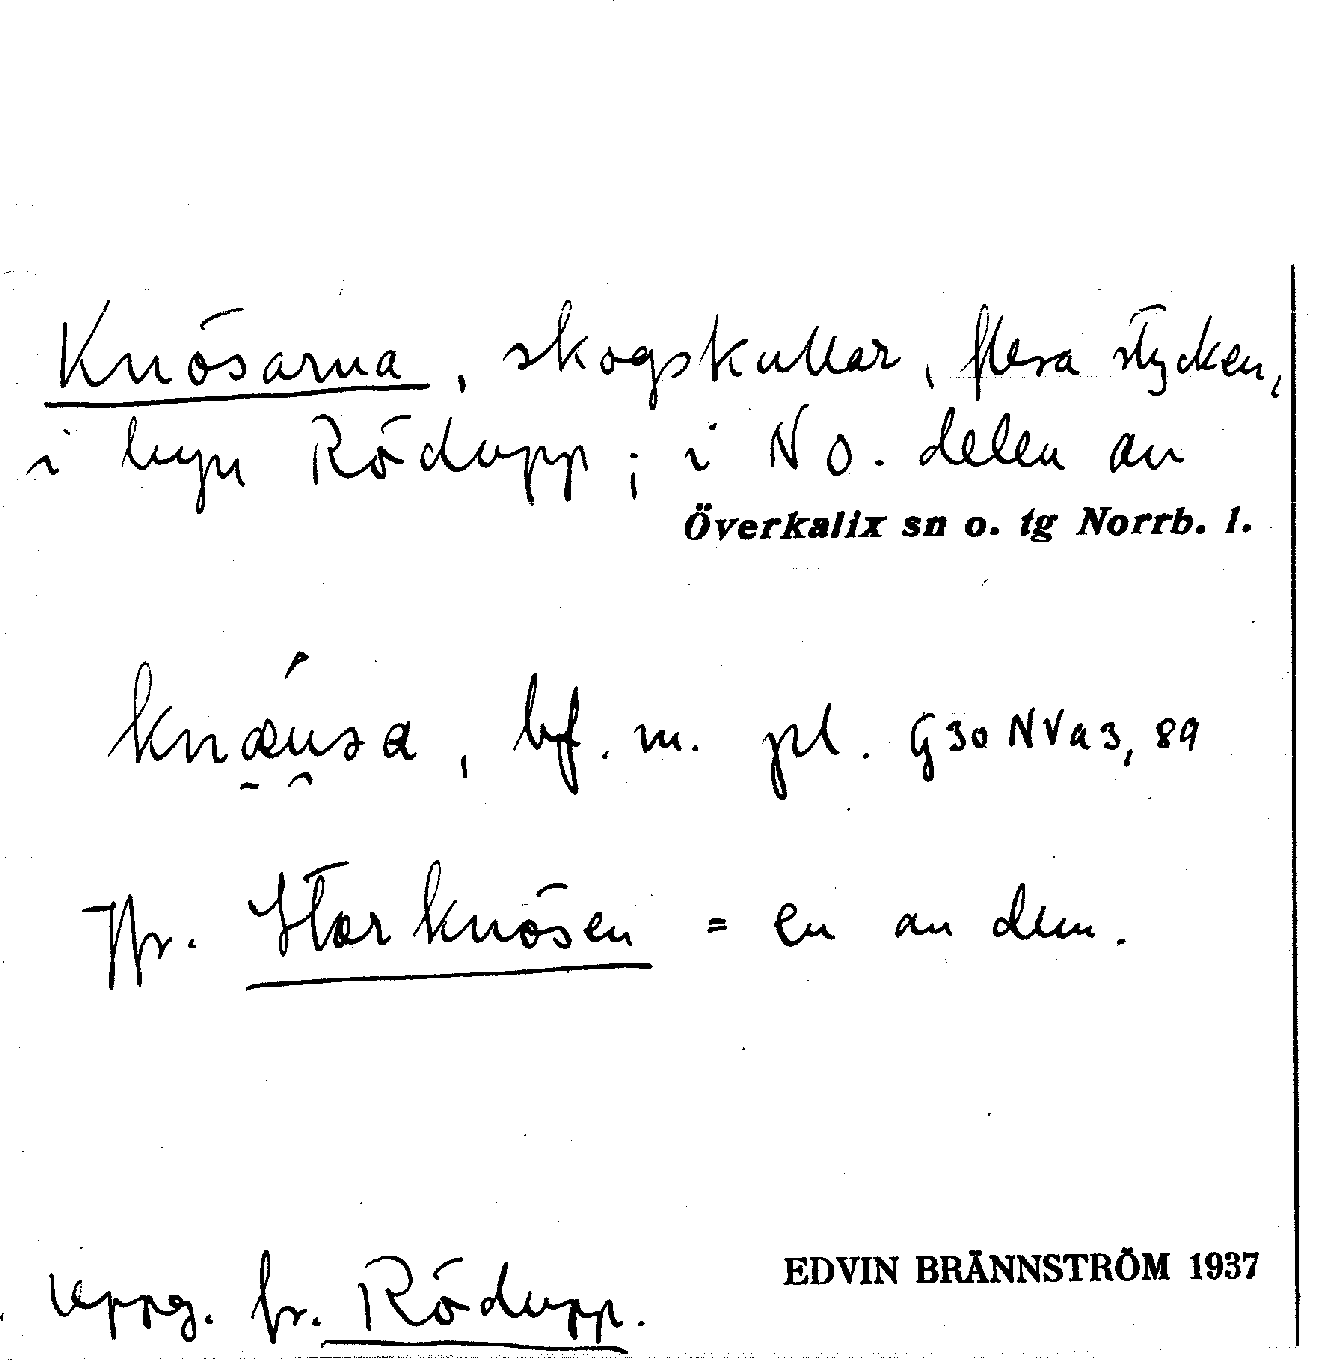 Knösarna, skogskullar, flera stycken,
i byn Rödupp; i NO. delen av
Överkalix sn o. tg Norrb. l.
knæusa, bf. m. pl. G30 NVa3, 89
Jfr. Storknösen = en av dem.
Uppg. fr. Rödupp.
EDVIN BRÄNNSTRÖM 1937